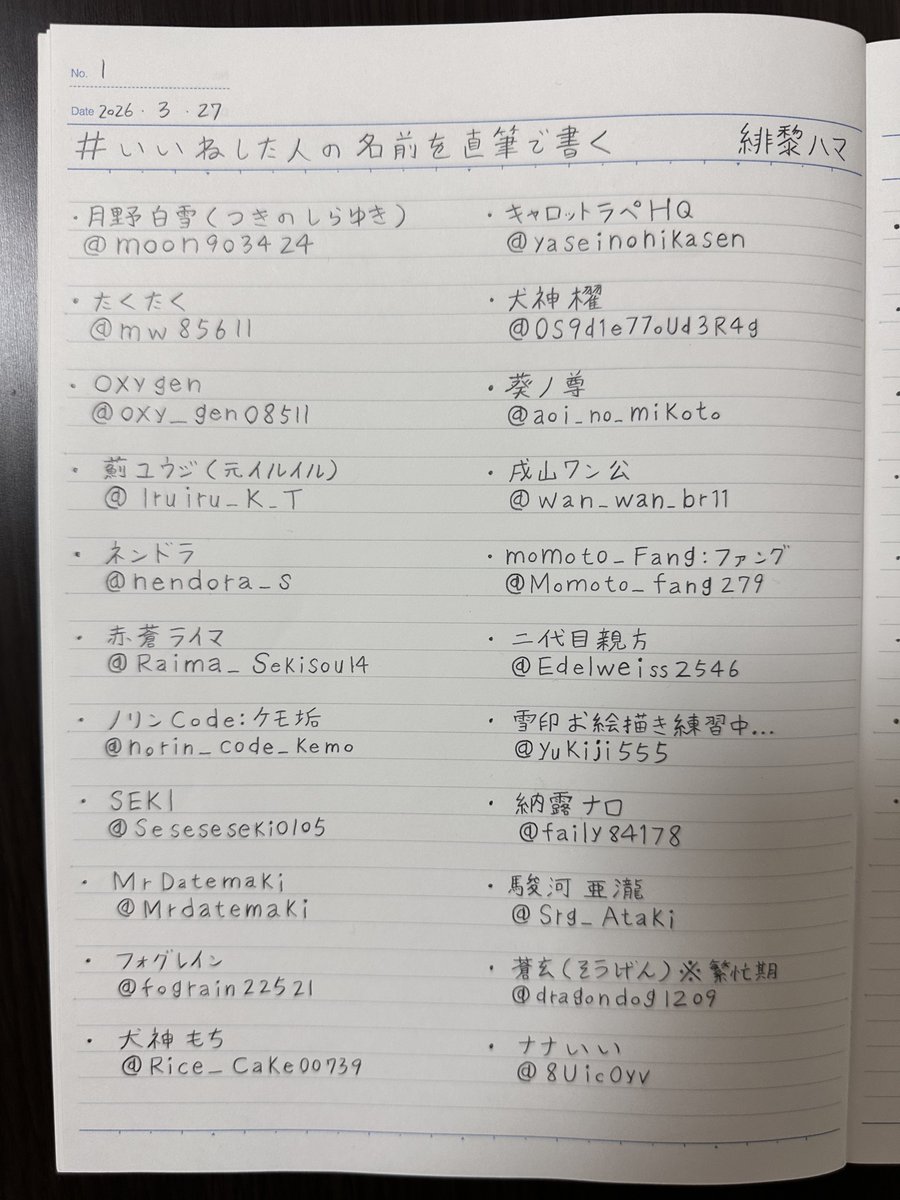 No. 1
Date 2026・3・27
#いいねした人の名前を直筆で書く 緋黎ハマ
・月野白雪(つきのしらゆき)
@moon903424
・たくたく
@mw85611
・Oxygen
@oxy_gen08511
・薊ユウジ(元イルイル)
@Iruiru_K_T
・ネンドラ
@nendora_s
・赤蒼ライマ
@Raima_Sekisou14
・ノリンCode:ケモ垢
@norin_code_kemo
・SEKI
@Seseseseki0105
・MrDatemaki
@Mrdatemaki
・フォグレイン
@fograin22521
・犬神もち
@Rice_Cake00739
・キャロットラペHQ
@yaseinohikasen
・犬神櫂
@OS9d1e77oUd3R4g
・葵ノ尊
@aoi_no_mikoto
・戌山ワン公
@wan_wan_br11
・momoto_Fang:ファング
@Momoto_fang279
・二代目親方
@Edelweiss2546
・雪印お絵描き練習中...
@yukiji555
・納露ナロ
@faily84178
・駿河亜瀧
@Srg_Ataki
・蒼玄(そうげん)※繁忙期
@dragondog1209
・ナナいい
@8UicOyv